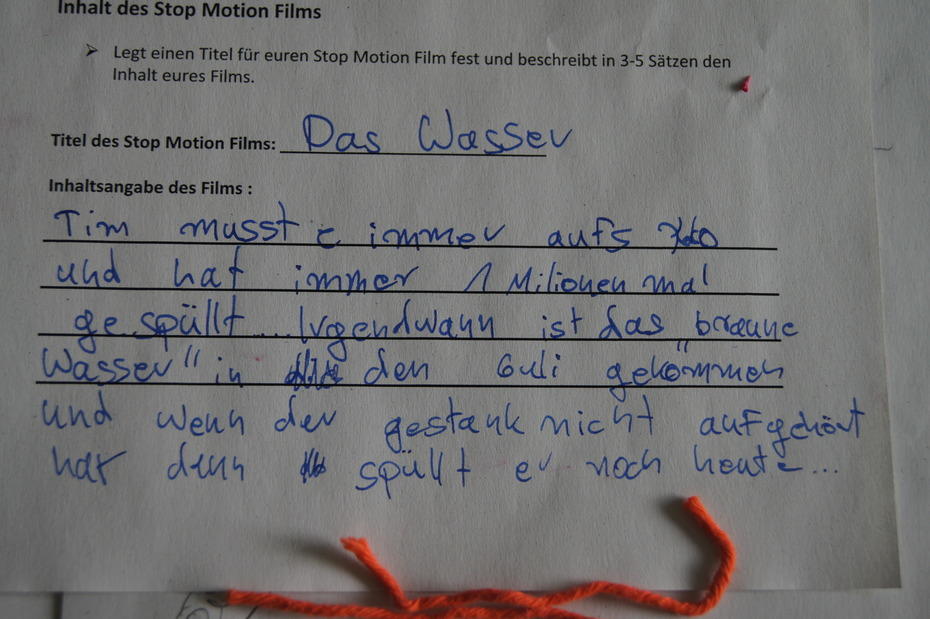 Inhalt des Stop Motion Films
➤ Legt einen Titel für euren Stop Motion Film fest und beschreibt in 3-5 Sätzen den
Inhalt eures Films.
Titel des Stop Motion Films: Das Wasser
Inhaltsangabe des Films :
Tim musste immer aufs
und hat immer 1 Milionen mal
gespüllt. Irgendwann ist das "braune
Wasser" in den Guli gekommen
und wenn der gestank nicht aufgehört
hat dann spüllt er noch heute...